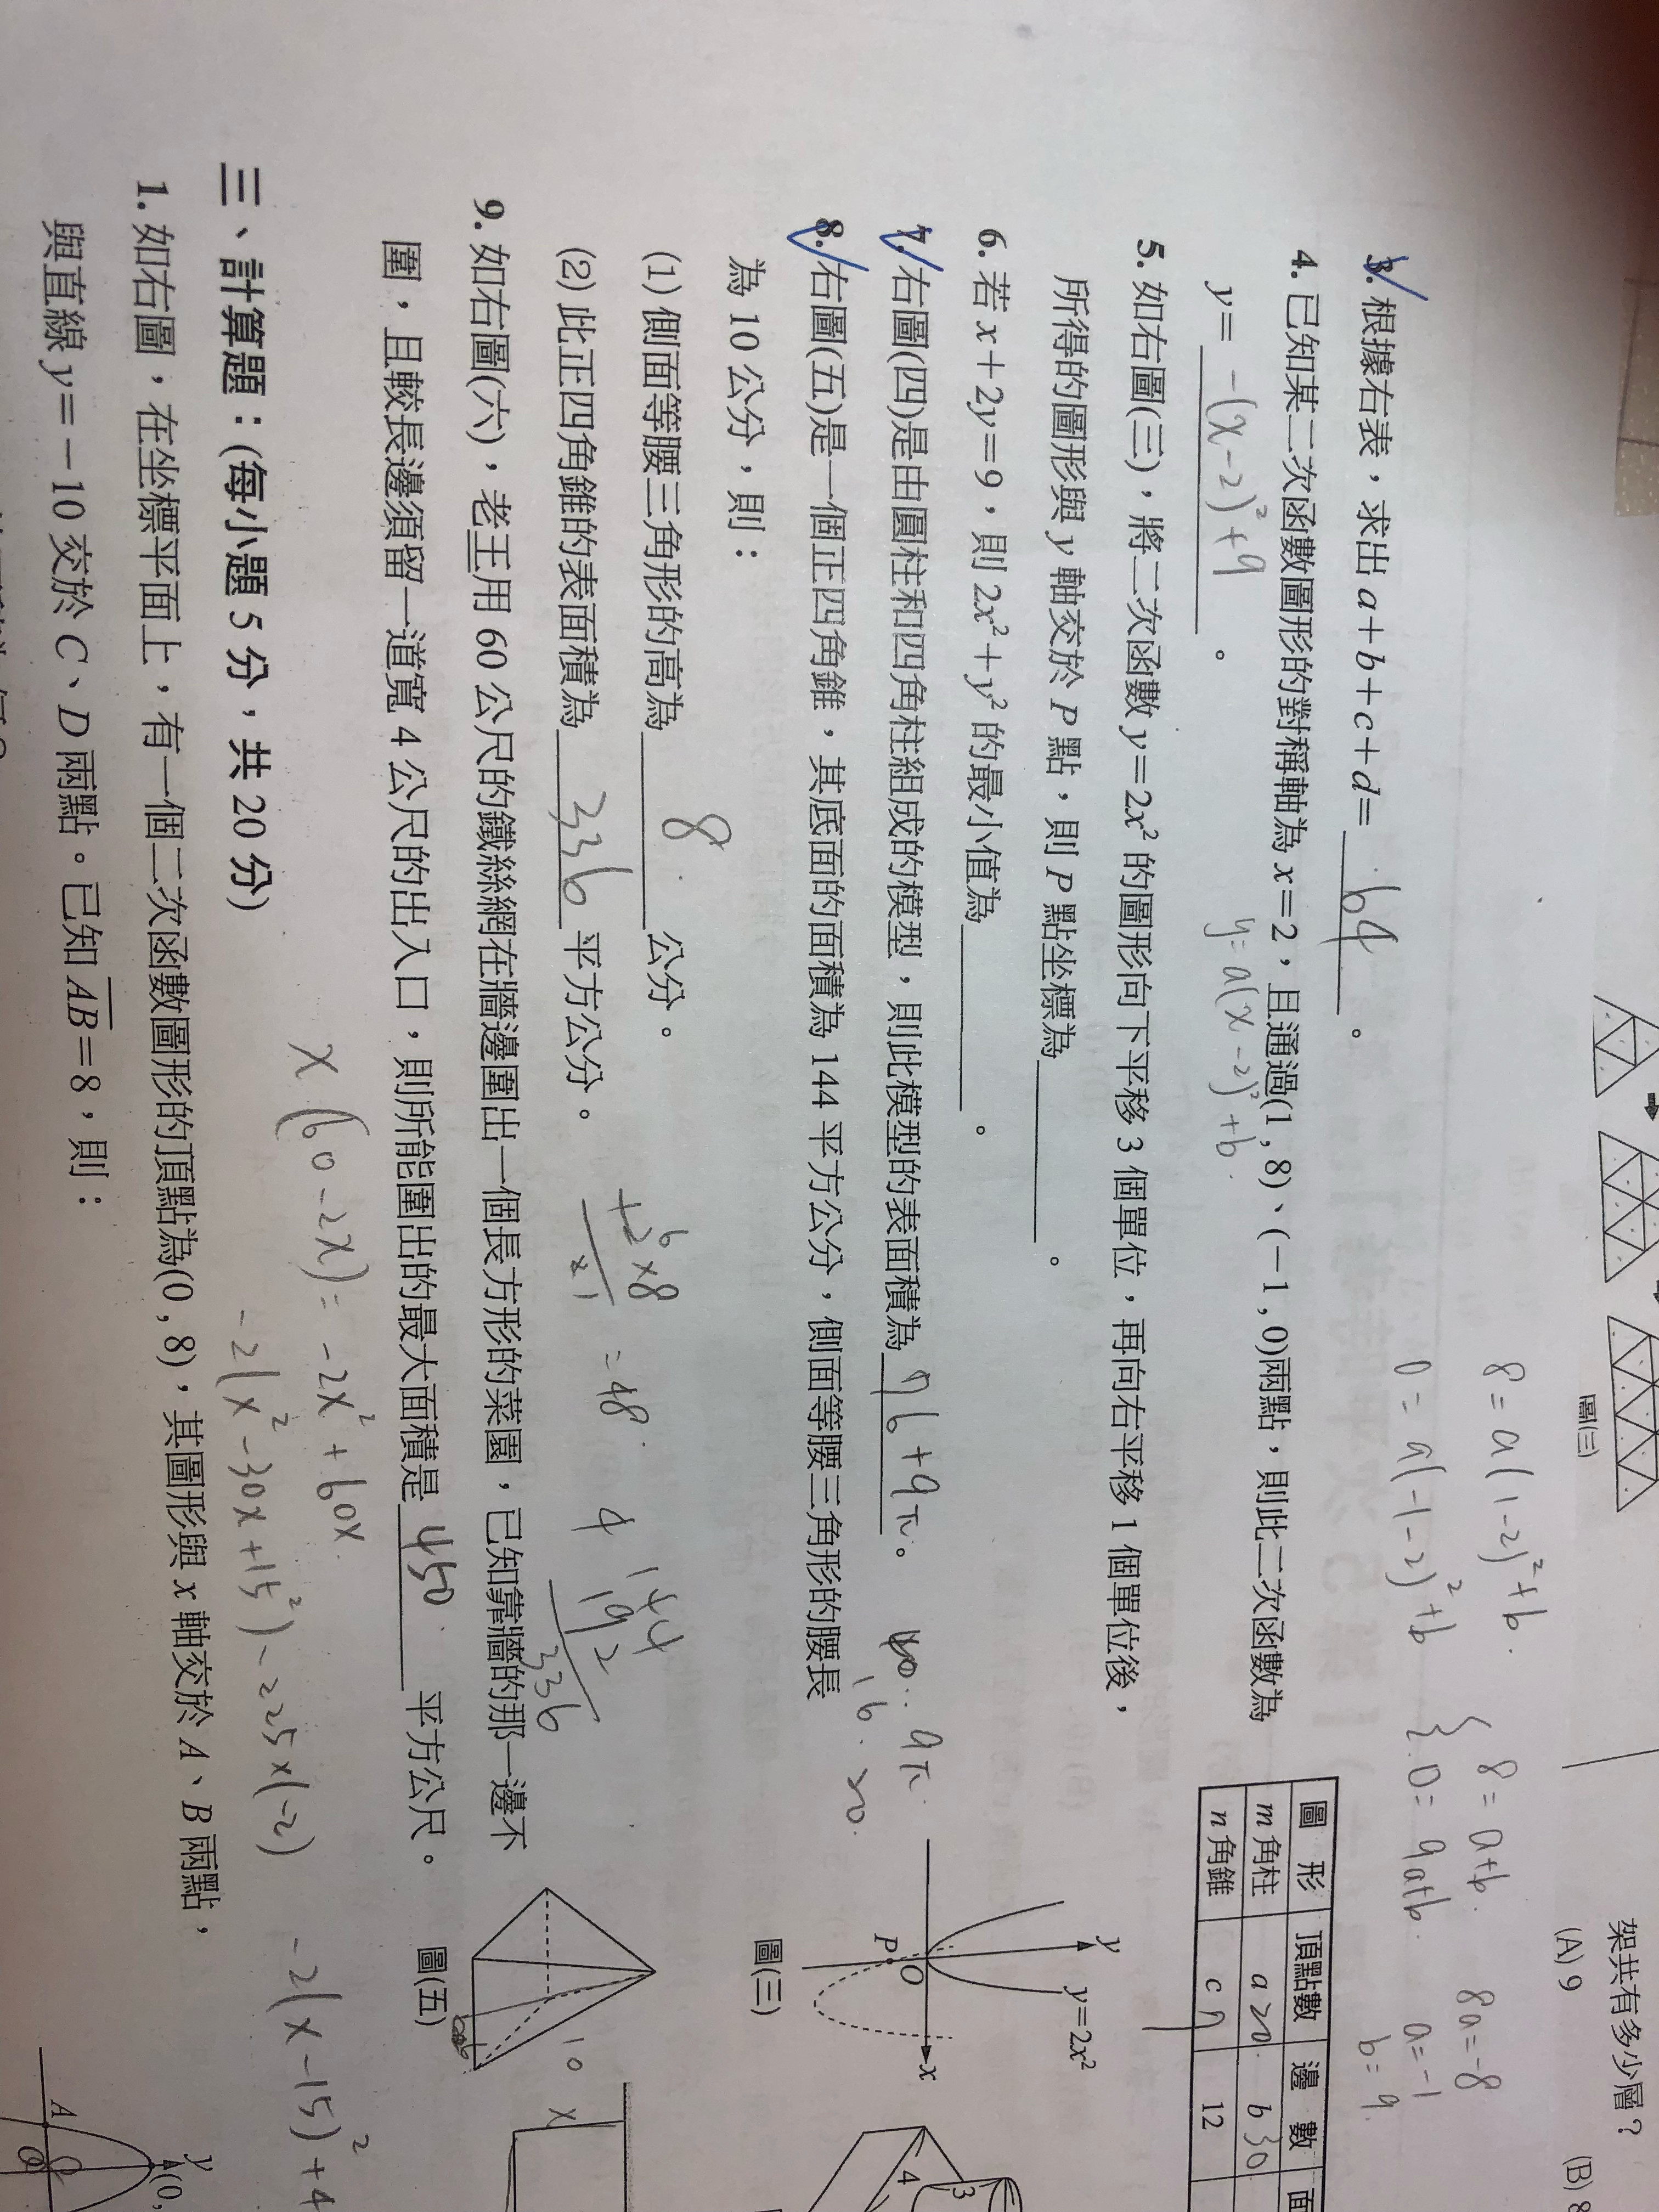 架共有多少層？
(A) 9
(B) 8
圖(三)
3. 根據右表，求出 a＋b＋c＋d＝64。
4. 已知某二次函數圖形的對稱軸為 x＝2，且通過(1 , 8)、(－1 , 0)兩點，則此二次函數為
y＝-(x-2)²+9。
y=a(x-2)²+b.
8=a(1-2)²+b.
0=a(-1-2)²+b
8=a+b.
0=9a+b.
8a=-8
a=-1
b=9.
圖 形 頂點數 邊 數 面
m 角柱 a 20 b 30
n 角錐 c 7 12
5. 如右圖(三)，將二次函數 y＝2x² 的圖形向下平移 3 個單位，再向右平移 1 個單位後，
所得的圖形與 y 軸交於 P 點，則 P 點坐標為。
6. 若 x＋2y＝9，則 2x²＋y² 的最小值為。
y
y＝2x²
x
O
P
圖(三)
7. 右圖(四)是由圓柱和四角柱組成的模型，則此模型的表面積為76+9π。
9π.
16.
20.
3
4
8. 右圖(五)是一個正四角錐，其底面的面積為 144 平方公分，側面等腰三角形的腰長
為 10 公分，則：
(1) 側面等腰三角形的高為8公分。
(2) 此正四角錐的表面積為336平方公分。
=48.
4
144
192
336
10
圖(五)
9. 如右圖(六)，老王用 60 公尺的鐵絲網在牆邊圍出一個長方形的菜園，已知靠牆的那一邊不
圍，且較長邊須留一道寬 4 公尺的出入口，則所能圍出的最大面積是450平方公尺。
x
x(60-2x)=-2x²+60x.
-2(x²-30x+15²)-225×(-2)
-2(x-15)²+4
三、計算題：(每小題 5 分，共 20 分)
1. 如右圖，在坐標平面上，有一個二次函數圖形的頂點為(0 , 8)，其圖形與 x 軸交於 A、B 兩點，
與直線 y＝－10 交於 C、D 兩點。已知 AB＝8，則：
y
(0,
A
O